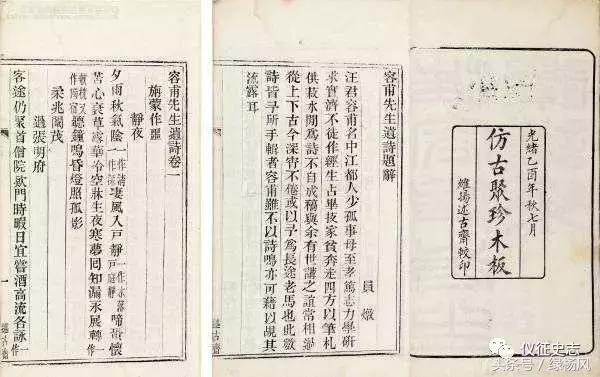 光緒乙酉年秋七月
仿古聚珍木板
維揚述古齋校印
容甫先生遺詩題辭
員燉
汪君容甫名中江都人少孤事母至孝篤志力學研
求實濟不徒作經生占畢技家貧奔走四方以筆札
供菽水間爲詩不自成稿與余有世講之誼常相過
從上下古今深宵不倦或以予爲長途老馬也此數
詩皆予所手輯者容甫雖不以詩鳴亦可藉以覘其
流露耳
容甫先生遺詩卷一
旃蒙作噩
靜夜
夕雨秋氣陰一作清淒風入戶靜一作水落戶庭靜啼蛩懷
苦心衰草緣華冷空牀生夜寒夢同知漏永展轉作
聽鐘鳴昏燈照孤影
柔兆閹茂
過張明府
客途仍聚首僧院欵門時暇日宜嘗酒高流各詠一作
一
述古齋
仪征史志
头条号 / 绿杨风